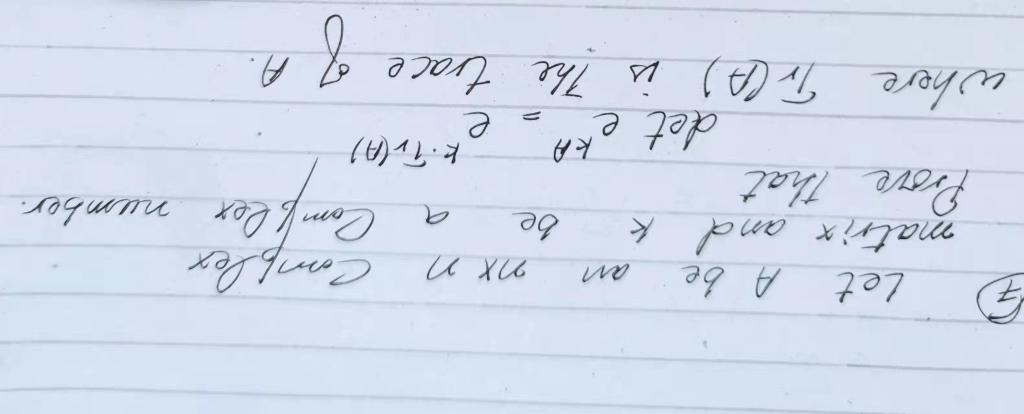 7 Let A be an nxn Complex
matrix and k be a Complex number.
Prove that
det e^{kA} = e^{k·Tr(A)}
where Tr(A) is the trace of A.